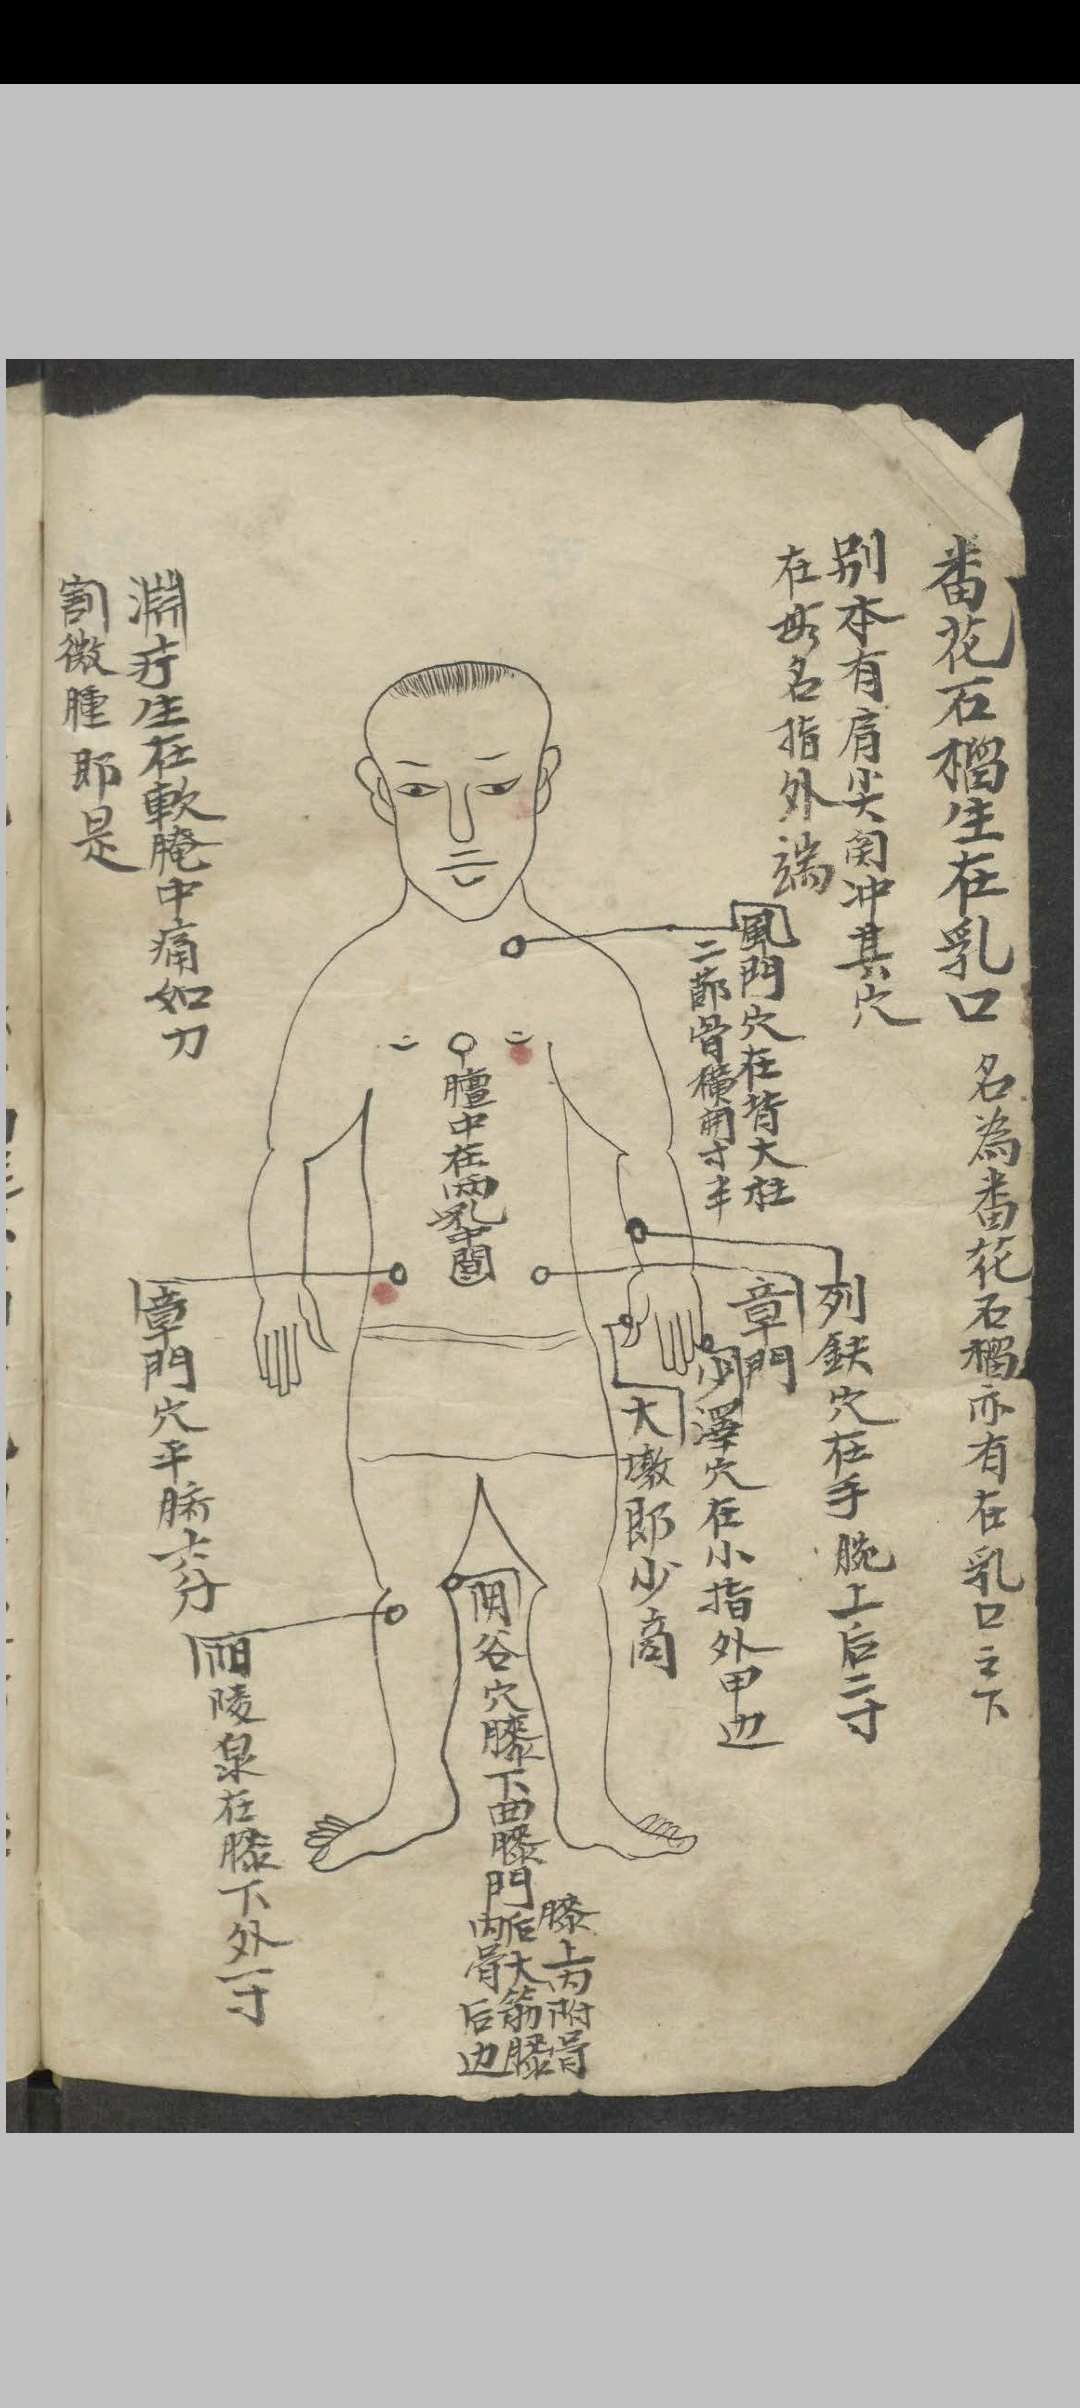 番花石榴生在乳口
名為番花石榴亦有在乳口之下
别本有肩尖関冲其穴
在毋名指外端
風門穴在背大柱
二節骨横開寸半
列鈌穴在手腕上后二寸
章門
少澤穴在小指外甲边
大墩即少商
膻中在两乳中間
阴谷穴膝下曲膝門
膝上内附骨
后大筋膝
内骨后边
章門穴平臍六分
阳陵泉在膝下外一寸
淵疔生在軟腌中痛如刀
割微腫即是